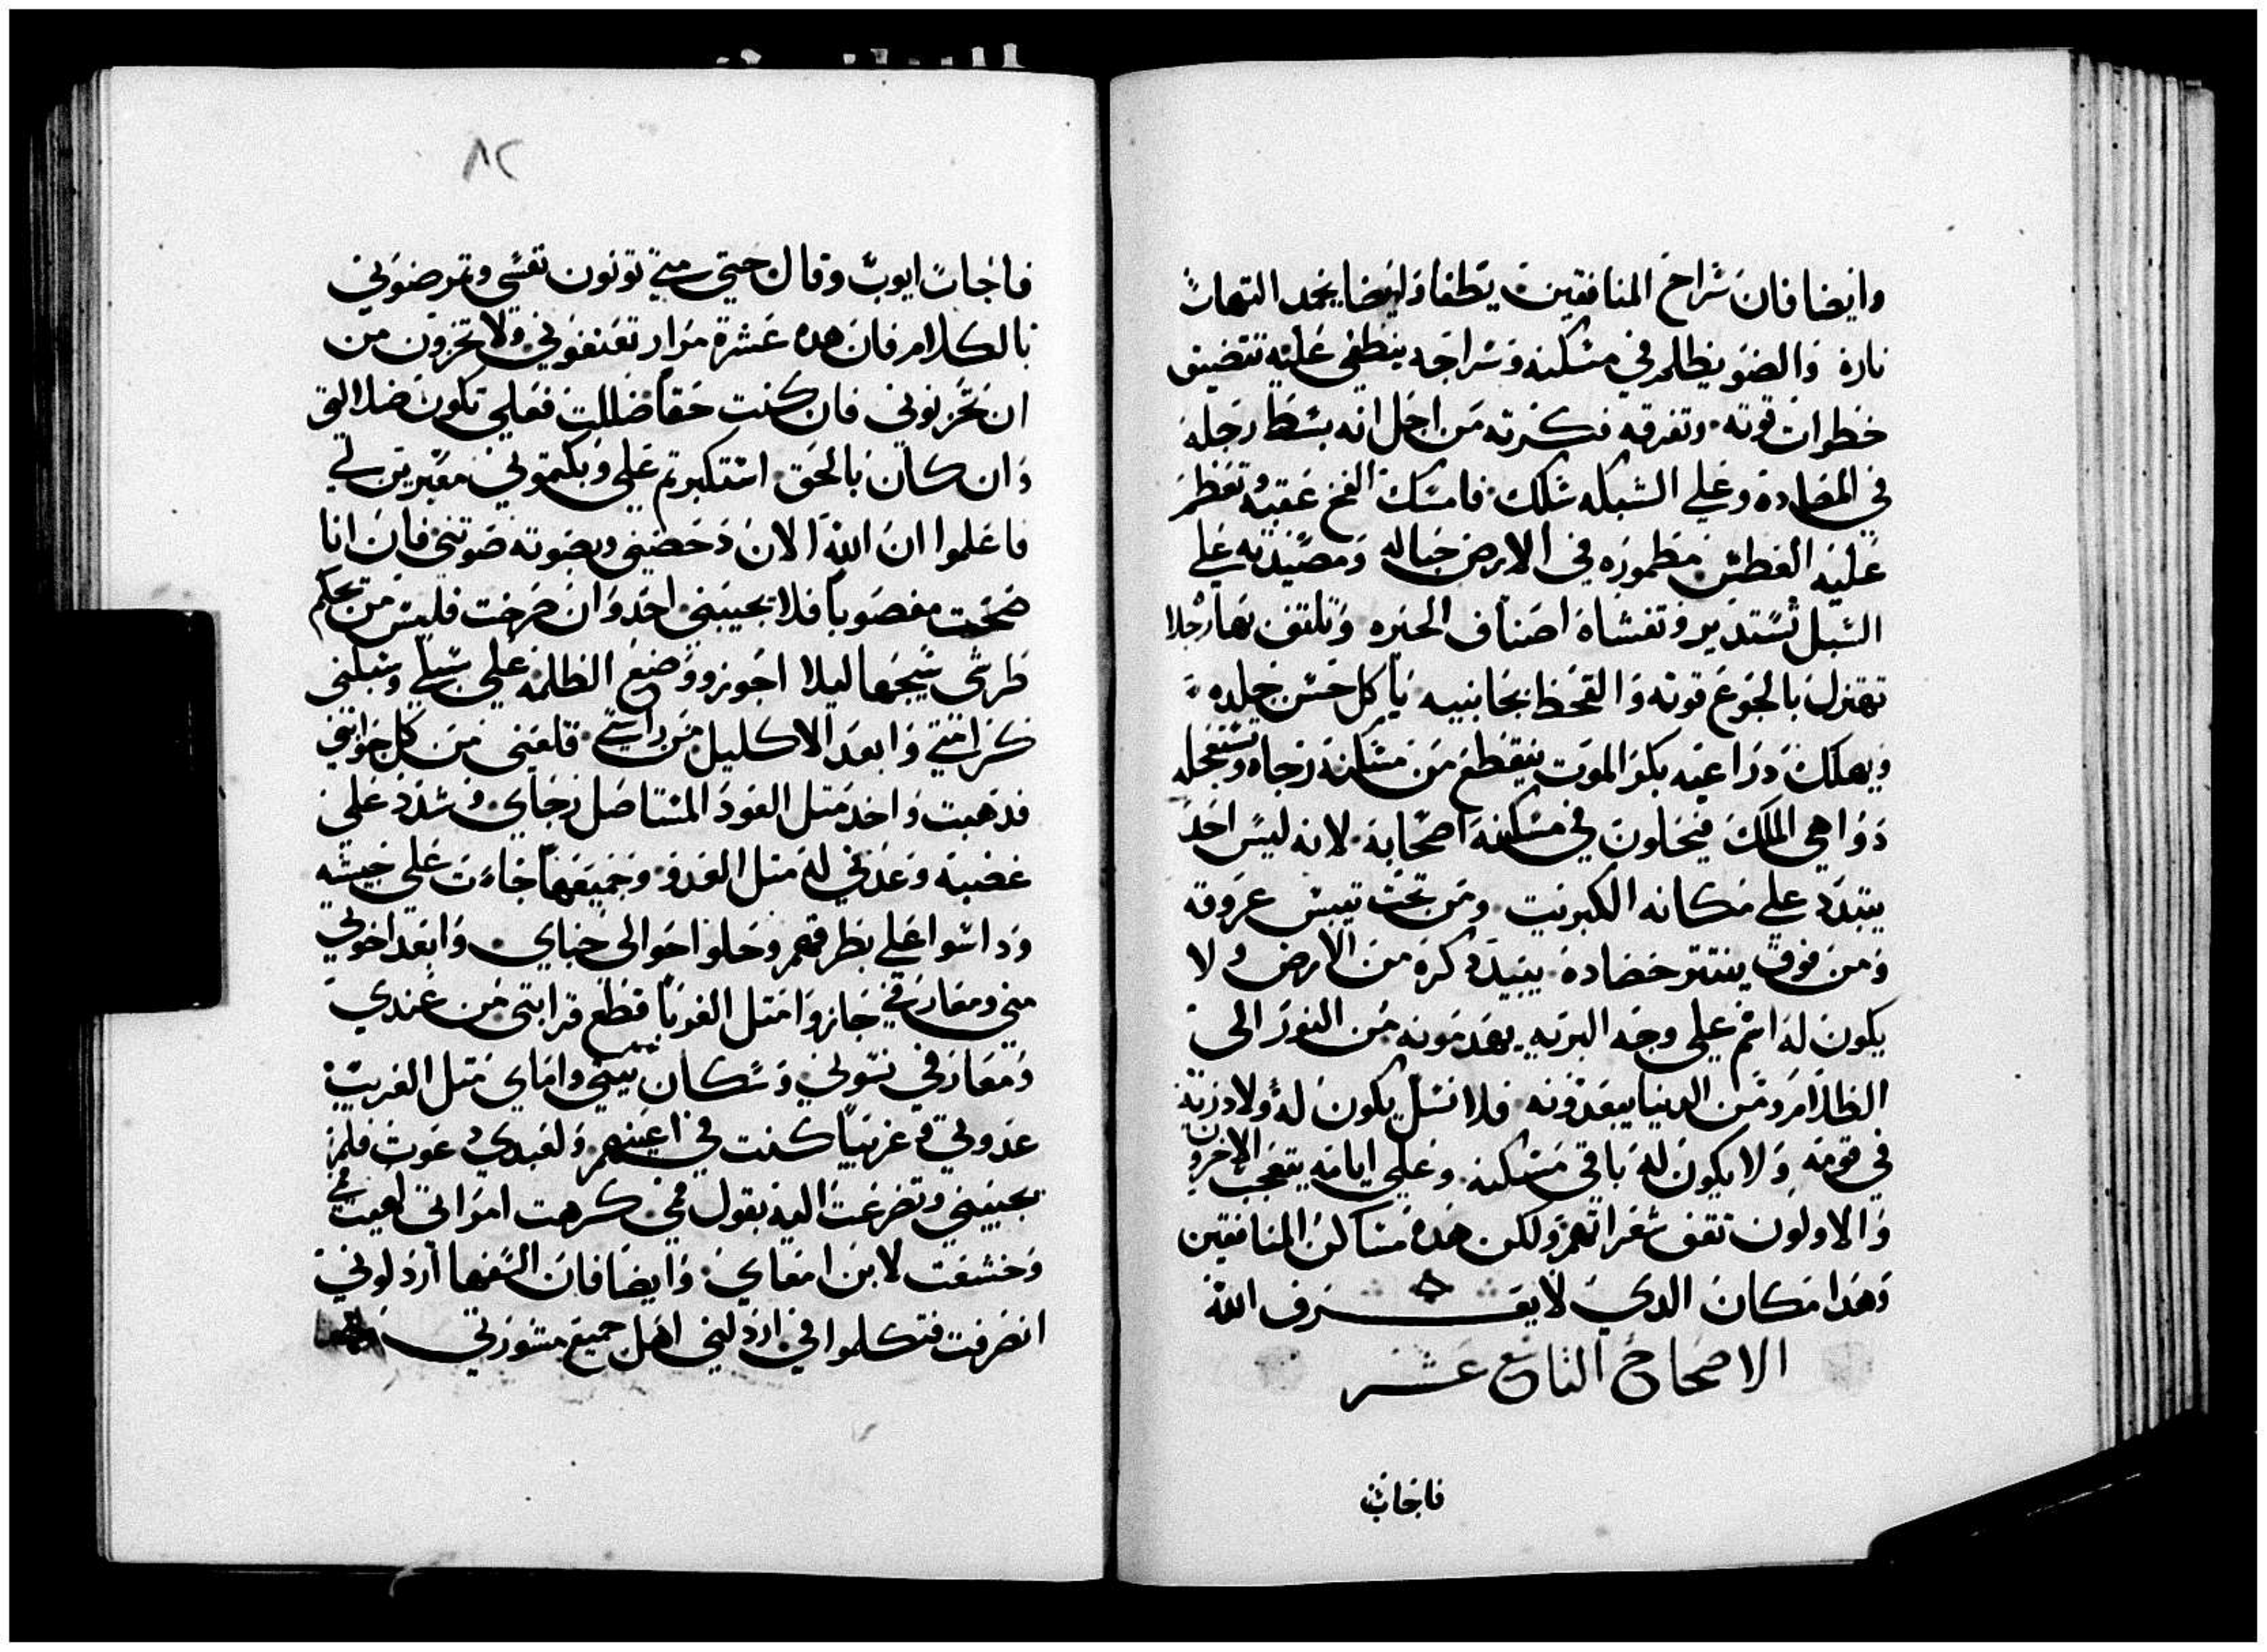 وايضا فان سراج المنافقين يطفا وايضا يخمد التهاب
ناره والضو يظلم في مسكنه وسراجه ينطفي عليه تتضيق
خطوات قوته وتفرقه فكرته من اجل انه بسط رجله
في المصاده وعلي الشبكه سلك فامسك الفخ عقبه وتعظم
عليه العطش مطموره في الارض حباله ومصيدته علي
السبل تستدير وتغشاه اصناف الحيره وتلتف بها رجلا
تهتزل بالجوع قوته والقحط بجانبيه ياكل حسن جلده
ويهلك دراعيه بكر الموت ينقطع من مسكنه رجاه وتستعجله
دواهي الملك فيحلون في مسكنه اصحابه لانه ليس احد
يتبدد علي مكانه الكبريت ومن تحت تيبس عروقه
ومن فوق ينتتر حصاده يبيد دكره من الارض ولا
يكون له اسم علي وجه البريه يعدمونه من النور الي
الظلام ومن الدنيا يبعدونه فلا نسل يكون له ولا درية
في قومه ولا يكون له باقي مسكنه وعلي ايامه يتعجب الاخرون
والاولون تقف شعراتهم ولكن هده مساكن المنافقين
وهدا مكان الدي لا يعرف الله
الاصحاح التاسع عشر
فاجاب
٨٢
فاجاب ايوب وقال حتي متي تونون نفسي وتمرضوني
بالكلام فان هده عشرة مرار تعنفوني ولا تخزون من
ان تحزنوني فان كنت حقا ضللت فعلي تكون ضلالتي
وان كان بالحق استكبرتم علي وبكمتوني معيرين لي
فاعلموا ان الله الان دحضني وبصوته صوتني فان انا
صحت مغصوبا فلا يجيبني احد وان صرخت فليس من يحكم
طرقي سيجها ليلا اجوز ووضع الظلمه علي سبلي وسلبني
كرامتي وابعد الاكليل من راسي قلعني من كل جوانبي
فدهبت واخد متل العود المستاصل رجاي وشدد علي
غضبه وعدني له متل العدو وجميعها جاءت علي جيشه
وداسوا علي بطرقهم وحلوا حوالي خباي وابعد اخوتي
مني ومعارفي جازوا متل الغربا قطع قرابتي من عندي
ومعارفي نسوني وسكان بيتي واماي متل الغريب
عدوني وغريبا كنت في اعينهم ولعبدي دعوت فلم
يجيبني وتضرعت اليه بقول فمي كرهت امراتي لهيب فمي
وخشعت لابن امعاي وايضا فان السفها اردلوني
انصرفت فتكلموا في اردلني اهل جميع مشورتي